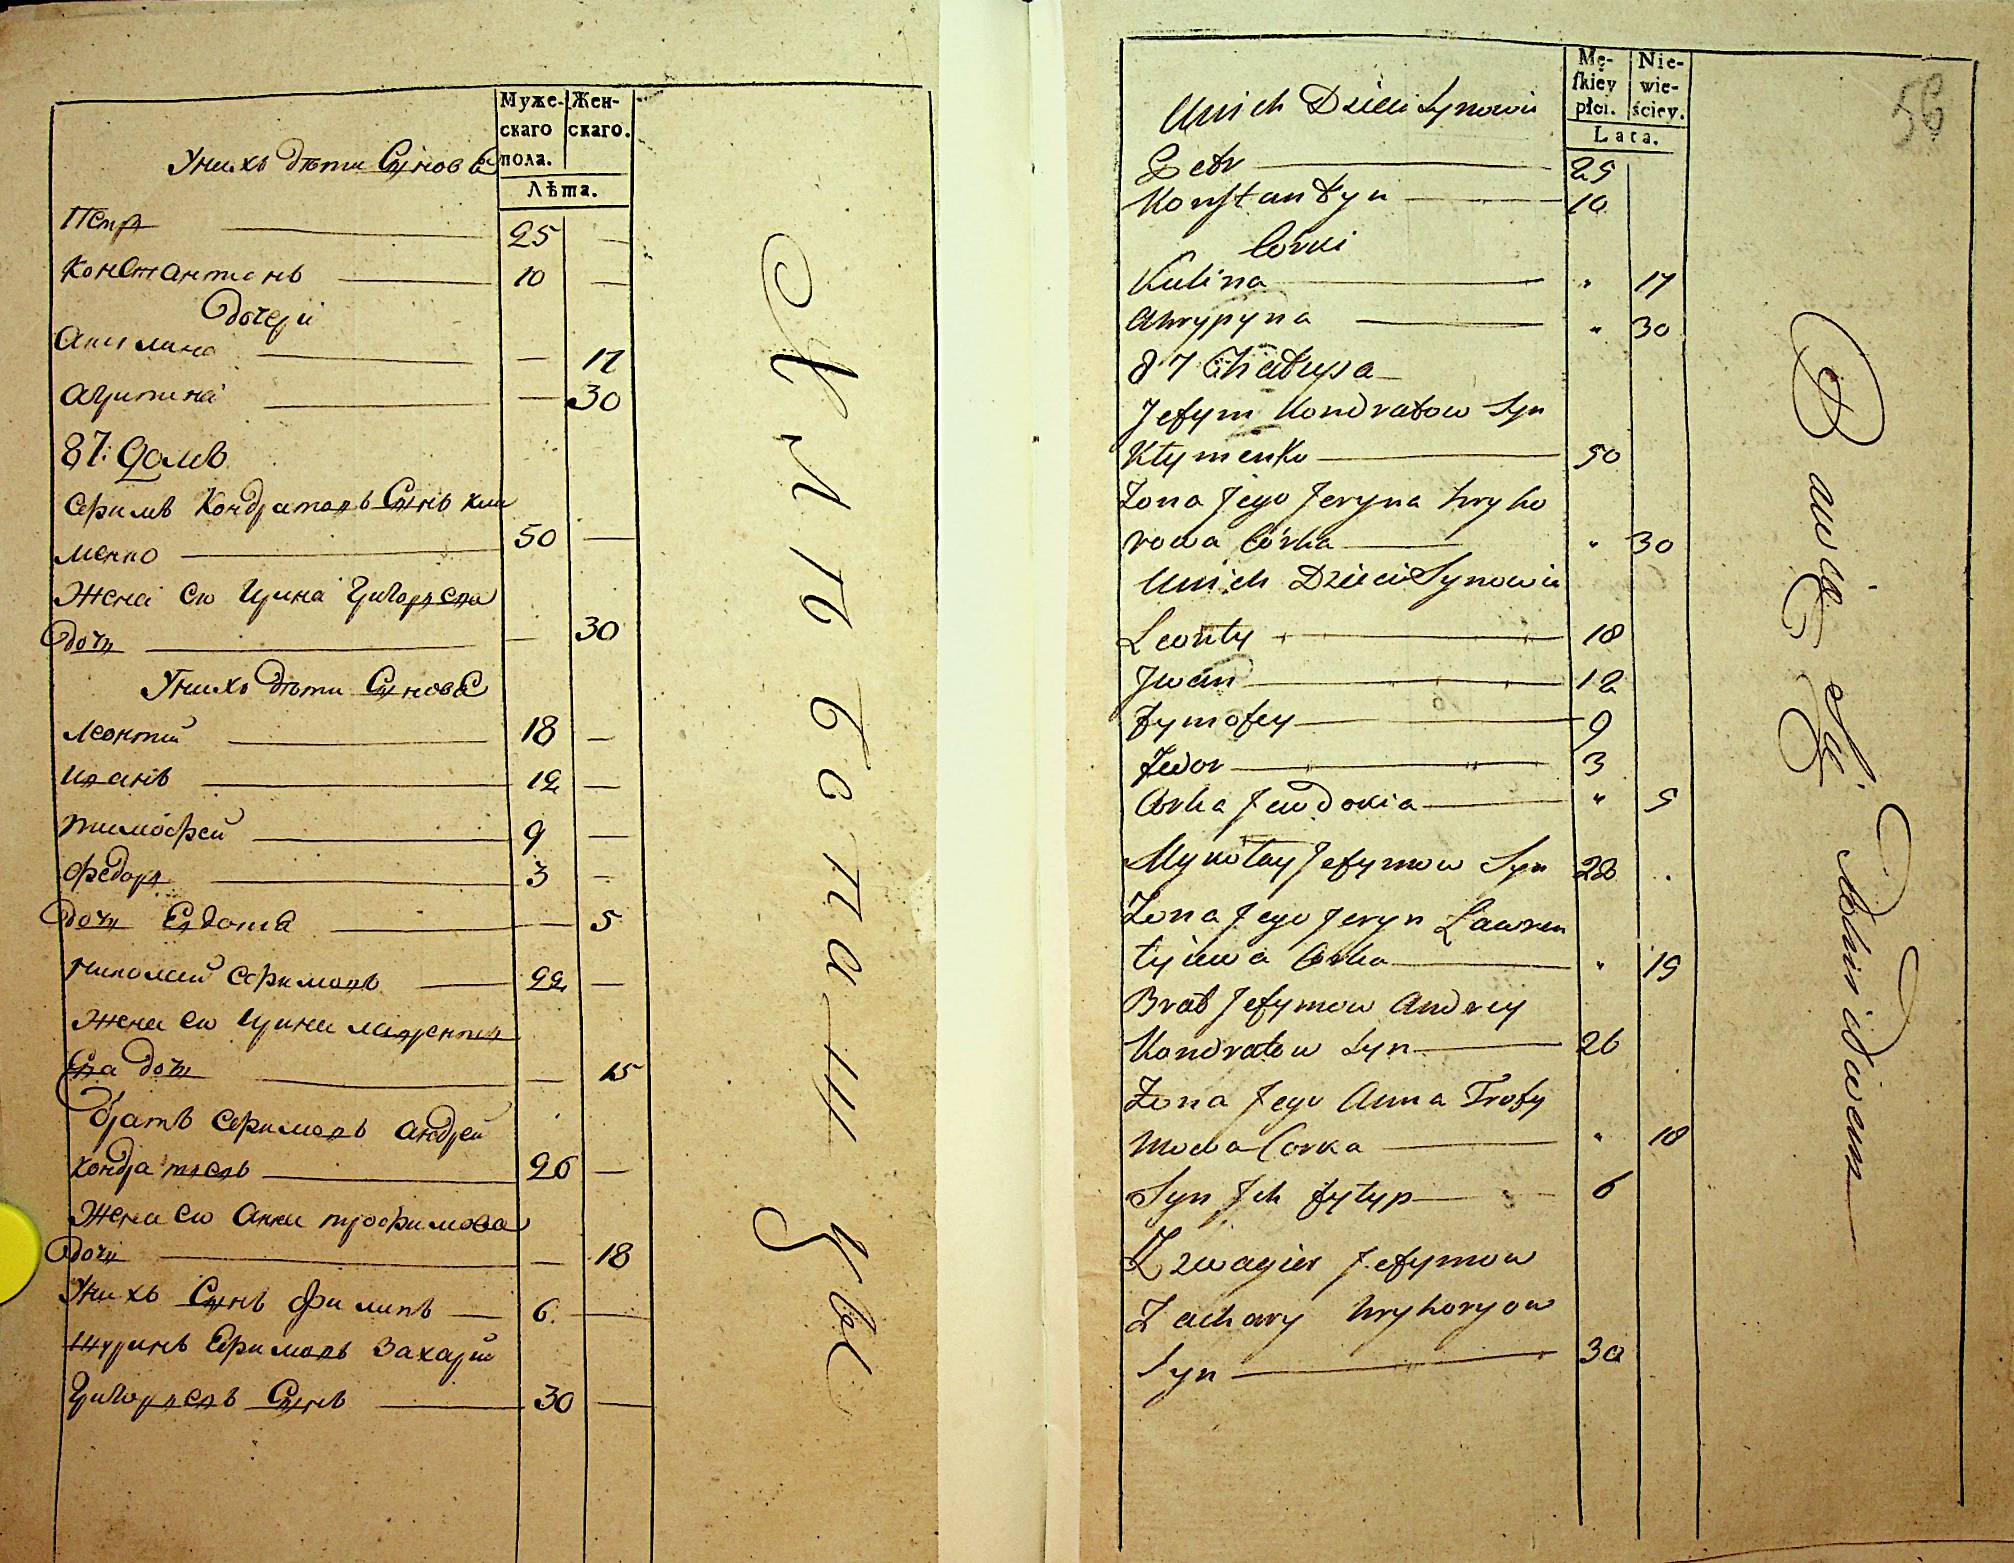 Муже-
скаго
пола.
Жен-
скаго.
Лѣта.
У нихъ дѣти Сынове
Петръ 25 —
Константинъ 10 —
дочери
Акилина — 17
Агрипина — 30
87. Домъ
Ефимъ Кондратовъ Сынъ Кли
менко 50 —
Жена его Ирина Григорьева
дочь — 30
У нихъ дѣти Сынове
Леонтий 18 —
Иванъ 12 —
Тимофей 9 —
Федоръ 3 —
дочь Евдокия — 5
Николай Ефимовъ 22 —
Жена его Ирина Лаврентье
ва дочь — 15
Братъ Ефимовъ Андрей
Кондратьевъ 26 —
Жена его Анна Трофимова
дочь — 18
У нихъ Сынъ Филипъ 6. —
Шуринъ Ефимовъ Захарий
Григорьевъ Сынъ 30 —
Mę-
skiey
płci.
Nie-
wie-
ściey.
Lata.
56
Unich Dzieci Synowie
Petr 25
Konstantyn 10
Corki
Kulina " 17
Ahrypyna " 30
87 Chałupa
Jefym Kondratow Syn
Kłymenko 50
Żona Jego Jeryna Hryho
rowa Córka " 30
Unich Dzieci Synowie
Leonty 18
Jwan 12
Tymofey 9
Fedor 3
Corka Jewdokia " 5
Mykołay Jefymow Syn 22
Żona Jego Jeryn Lawren
tyiewa Corka " 15
Brat Jefymow Andrey
Kondratow Syn 26
Żona Jego Anna Trofy
mowa Corka " 18
Syn Jch Fyłyp 6
Szwagier Jefymow
Zachary Hryhoryow
Syn 30